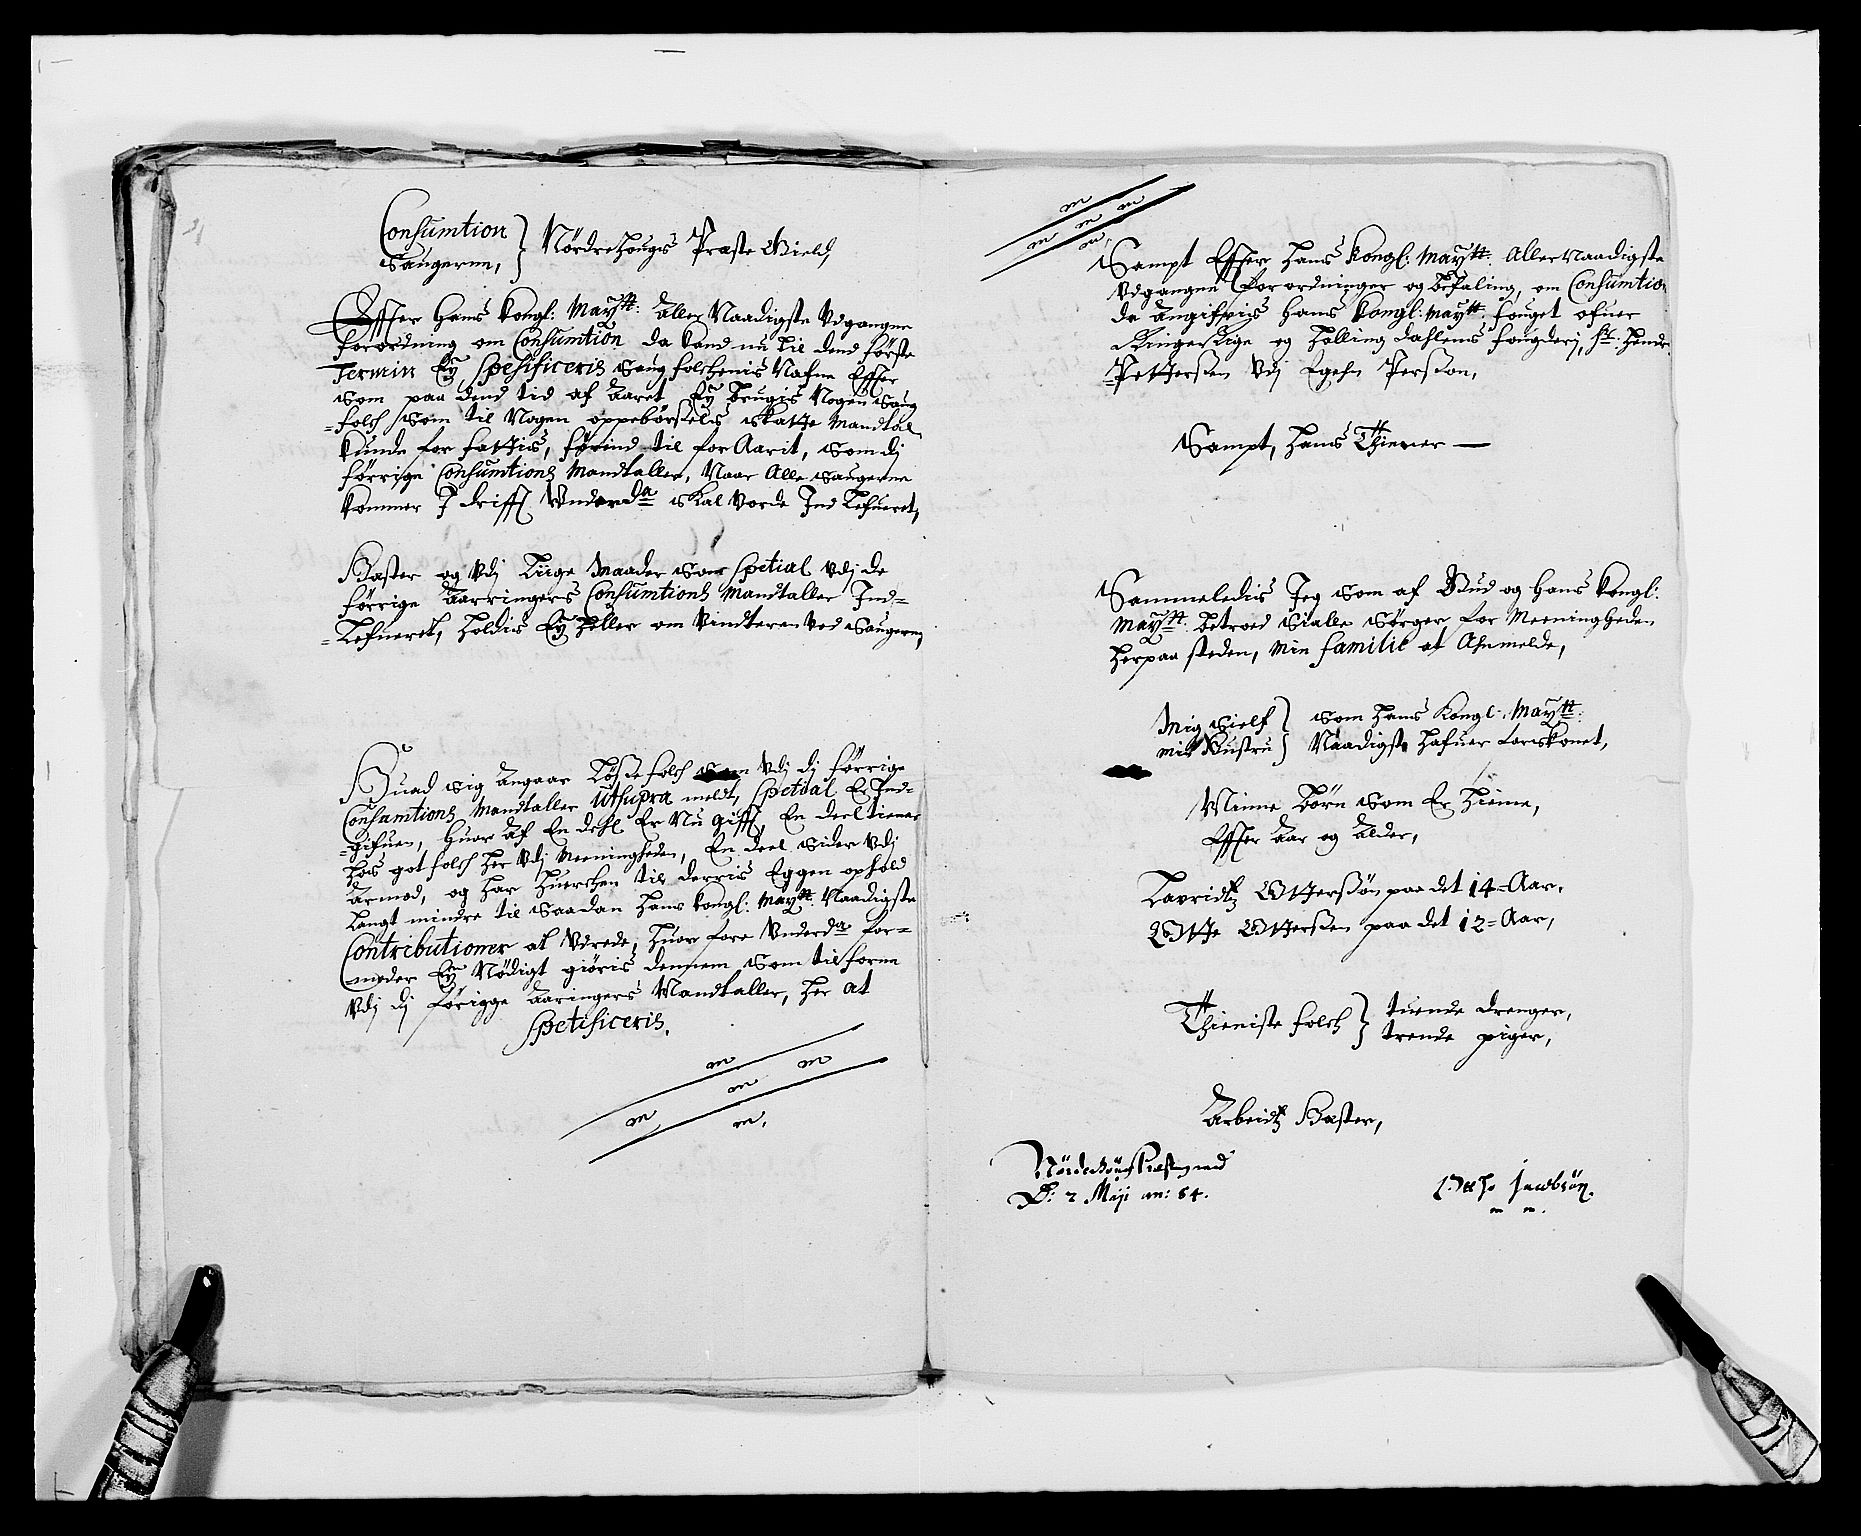 Consumtion } Nördrehougs Præste Gield,
Saugerne,
Effter Hans Kongl: Maytt: Aller Naadigste Vdgangne
forordning om Consumtion da kand nu til dend förste
Termin Ey Spesificeris Saug folchenis Nafne Effter
som paa dend tid af Aaret Ey brugis Nogen Saug
=folch som til Nogen oppebörselis skatte Mandtal
kunde for fattis, förind til for Aarit, som dj
förrige Consumtions Mandtaller, Naar Alle Saugerne
kommer J drifft Vnderda skal vorde Ind Lefueret,
Bæster og vdj Liige Maader som Spetial vdj de
förrige Aarringers Consumtions Mandtaller Ind=
=Lefueret, holdis Ey heller om Vindteren ved Saugerne,
Huad sig Angaar Lösefolch som vdj dj förrige
Consumtions Mandtaller Utsupra meldt, Spetial Er Ind=
=gifuen, huor Af En deel Er Nu gifft, En deel tiener
hos got folch her vdj Meeningheden, En deel sider vdj
Armod, og har huerchen til derris Eggen ophold
Langt mindre til Saadan Hans Kongl: Maytt: Naadigste
Contributioner at Vdrede, huor fore Vnderda for=
=meder Ey Nödigt giöris dennem som tilforne
vdj dj förigge Aaringers Mandtaller, her at
Spetificeris.
m m m
m m.
m m m
m m.
Sampt Effter Hans Kongl: Maytt: Aller Naadigste
Vdgangne forordninger og befaling, om Consumtion
da Angiffuis Hans Kongl: Maytt: fouget ofuer
RingeRige og Halling dahlens fougderj, Sr: Hendr:
=Pettersen vdj Egehn Person,
Sampt, Hans Thiener —
Sammeledis Jeg som af Gud og Hans Kongl:
Maytt: betroed Sialle Sörger for Meeningheden
herpaa steden, Min familie at Ahnmelde,
Mig Sielf } som Hans Kongl: Maytt:
min Hustru } Naadigste hafuer forskonet,
Minne börn som Er hieme,
Effter Aar og Alder,
Lavridtz Ottersön paa det 14=Aar,
Otte Ottersen paa det 12=Aar,
Thieniste folch } tuende drenger,
trende piger,
Arbeidtz Bæster,
D: 2 Maji an: 84.
Otto Jacobsön.
m m.